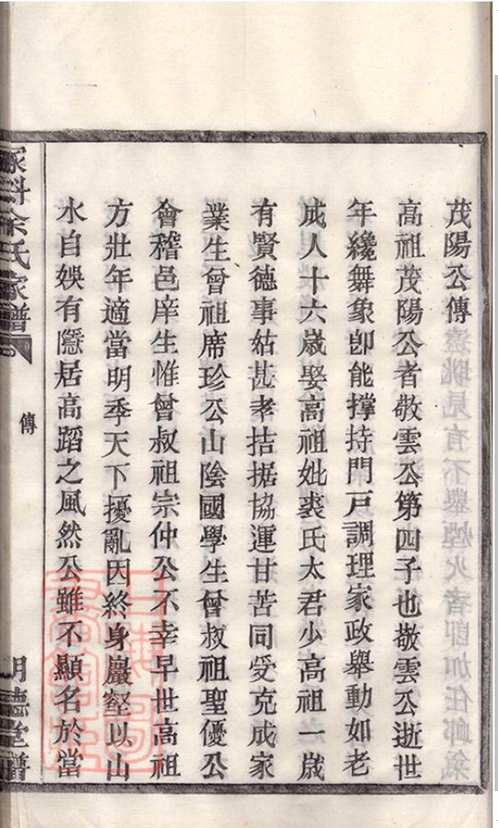 茂陽公傳
高祖茂陽公者敬雲公第四子也敬雲公逝世
年纔舞象卽能撑持門戸調理家政舉動如老
成人十六歲娶高祖妣裘氏太君少高祖一歲
有賢德事姑甚孝拮据協運甘苦同受克成家
業生曾祖席珍公山陰國學生曾叔祖聖優公
會稽邑庠生惟曾叔祖宗仲公不幸早世高祖
方壯年適當明季天下擾亂因終身巖壑以山
水自娛有隱居高蹈之風然公雖不顯名於當
余氏家譜
傳
明德堂譜